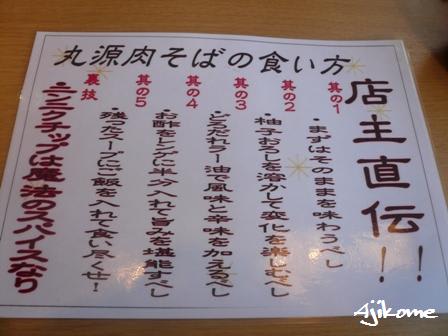 丸源肉そばの食い方
店主直伝!!
其の1
・まずはそのままを味わうべし
其の2
・柚子おろしを溶かして変化を楽しむべし
其の3
・どろだれラー油で風味と辛味を加えるべし
其の4
・お酢をレンゲに半分入れて旨みを堪能すべし
其の5
・残ったスープにご飯を入れて食い尽くせ!
裏技
ニンニクチップは魔法のスパイスなり
Ajikome